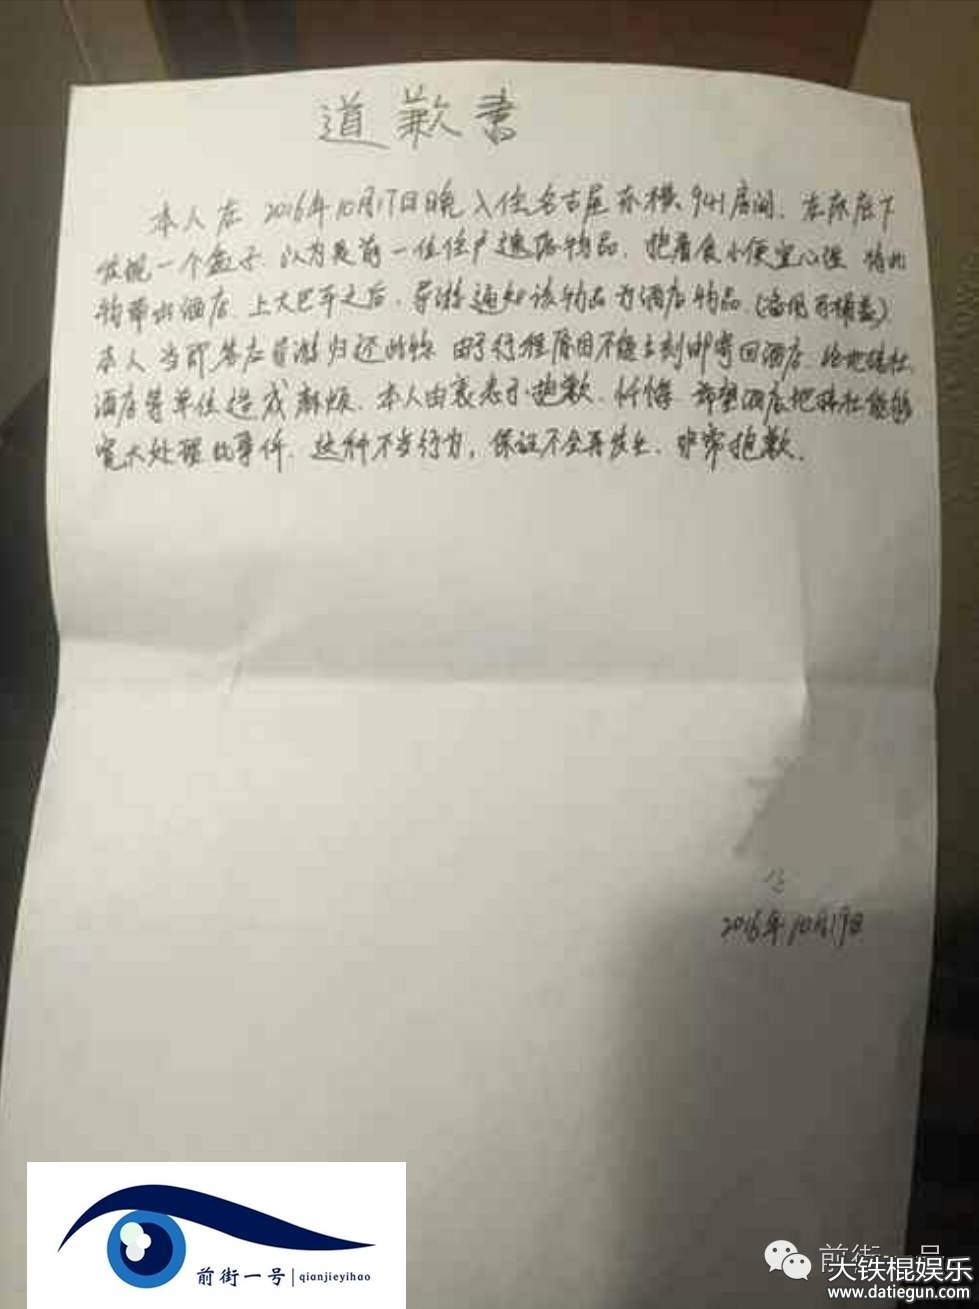 道歉书
本人在 2016年10月17日晚入住名古屋东横 941房间，在床底下
发现一个盒子，以为是前一位住户遗落物品，抱着贪小便宜心理 将此
物带出酒店，上大巴车之后，导游通知该物品为酒店物品（备用马桶盖）
本人当即答应导游归还此物 由于行程原因不能立刻邮寄回酒店，给地接社，
酒店等单位造成麻烦，本人由衷表示抱歉、忏悔 希望酒店地接社能够
宽大处理此事件，这种不当行为，保证不会再发生，非常抱歉。
2016年10月19日
前街一号 | qianjieyihao
前街一号
大铁棍娱乐
www.datiegun.com